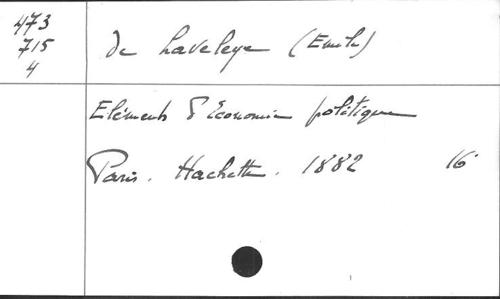 473
715
4
de Laveleye (Emile)
Eléments d'Economie politique
Paris. Hachette. 1882 16°